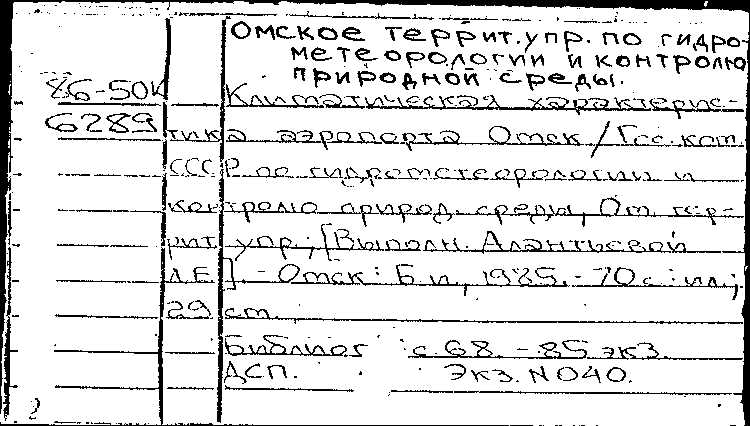 Омское террит. упр. по гидро-
метеорологии и контролю
природной среды.
86-50К Климатическая характерис-
6289 тика аэропорта Омск / Гос. ком.
СССР по гидрометеорологии и
контролю природ. среды, Ом. тер-
рит. упр.; [Выполн. Алэнтьевой
Л.Е.]. - Омск: Б.и., 1985. - 70 с.: ил.;
29 см.
Библиог с. 68. - 85 экз.
ДСП. Экз. N 040.
2